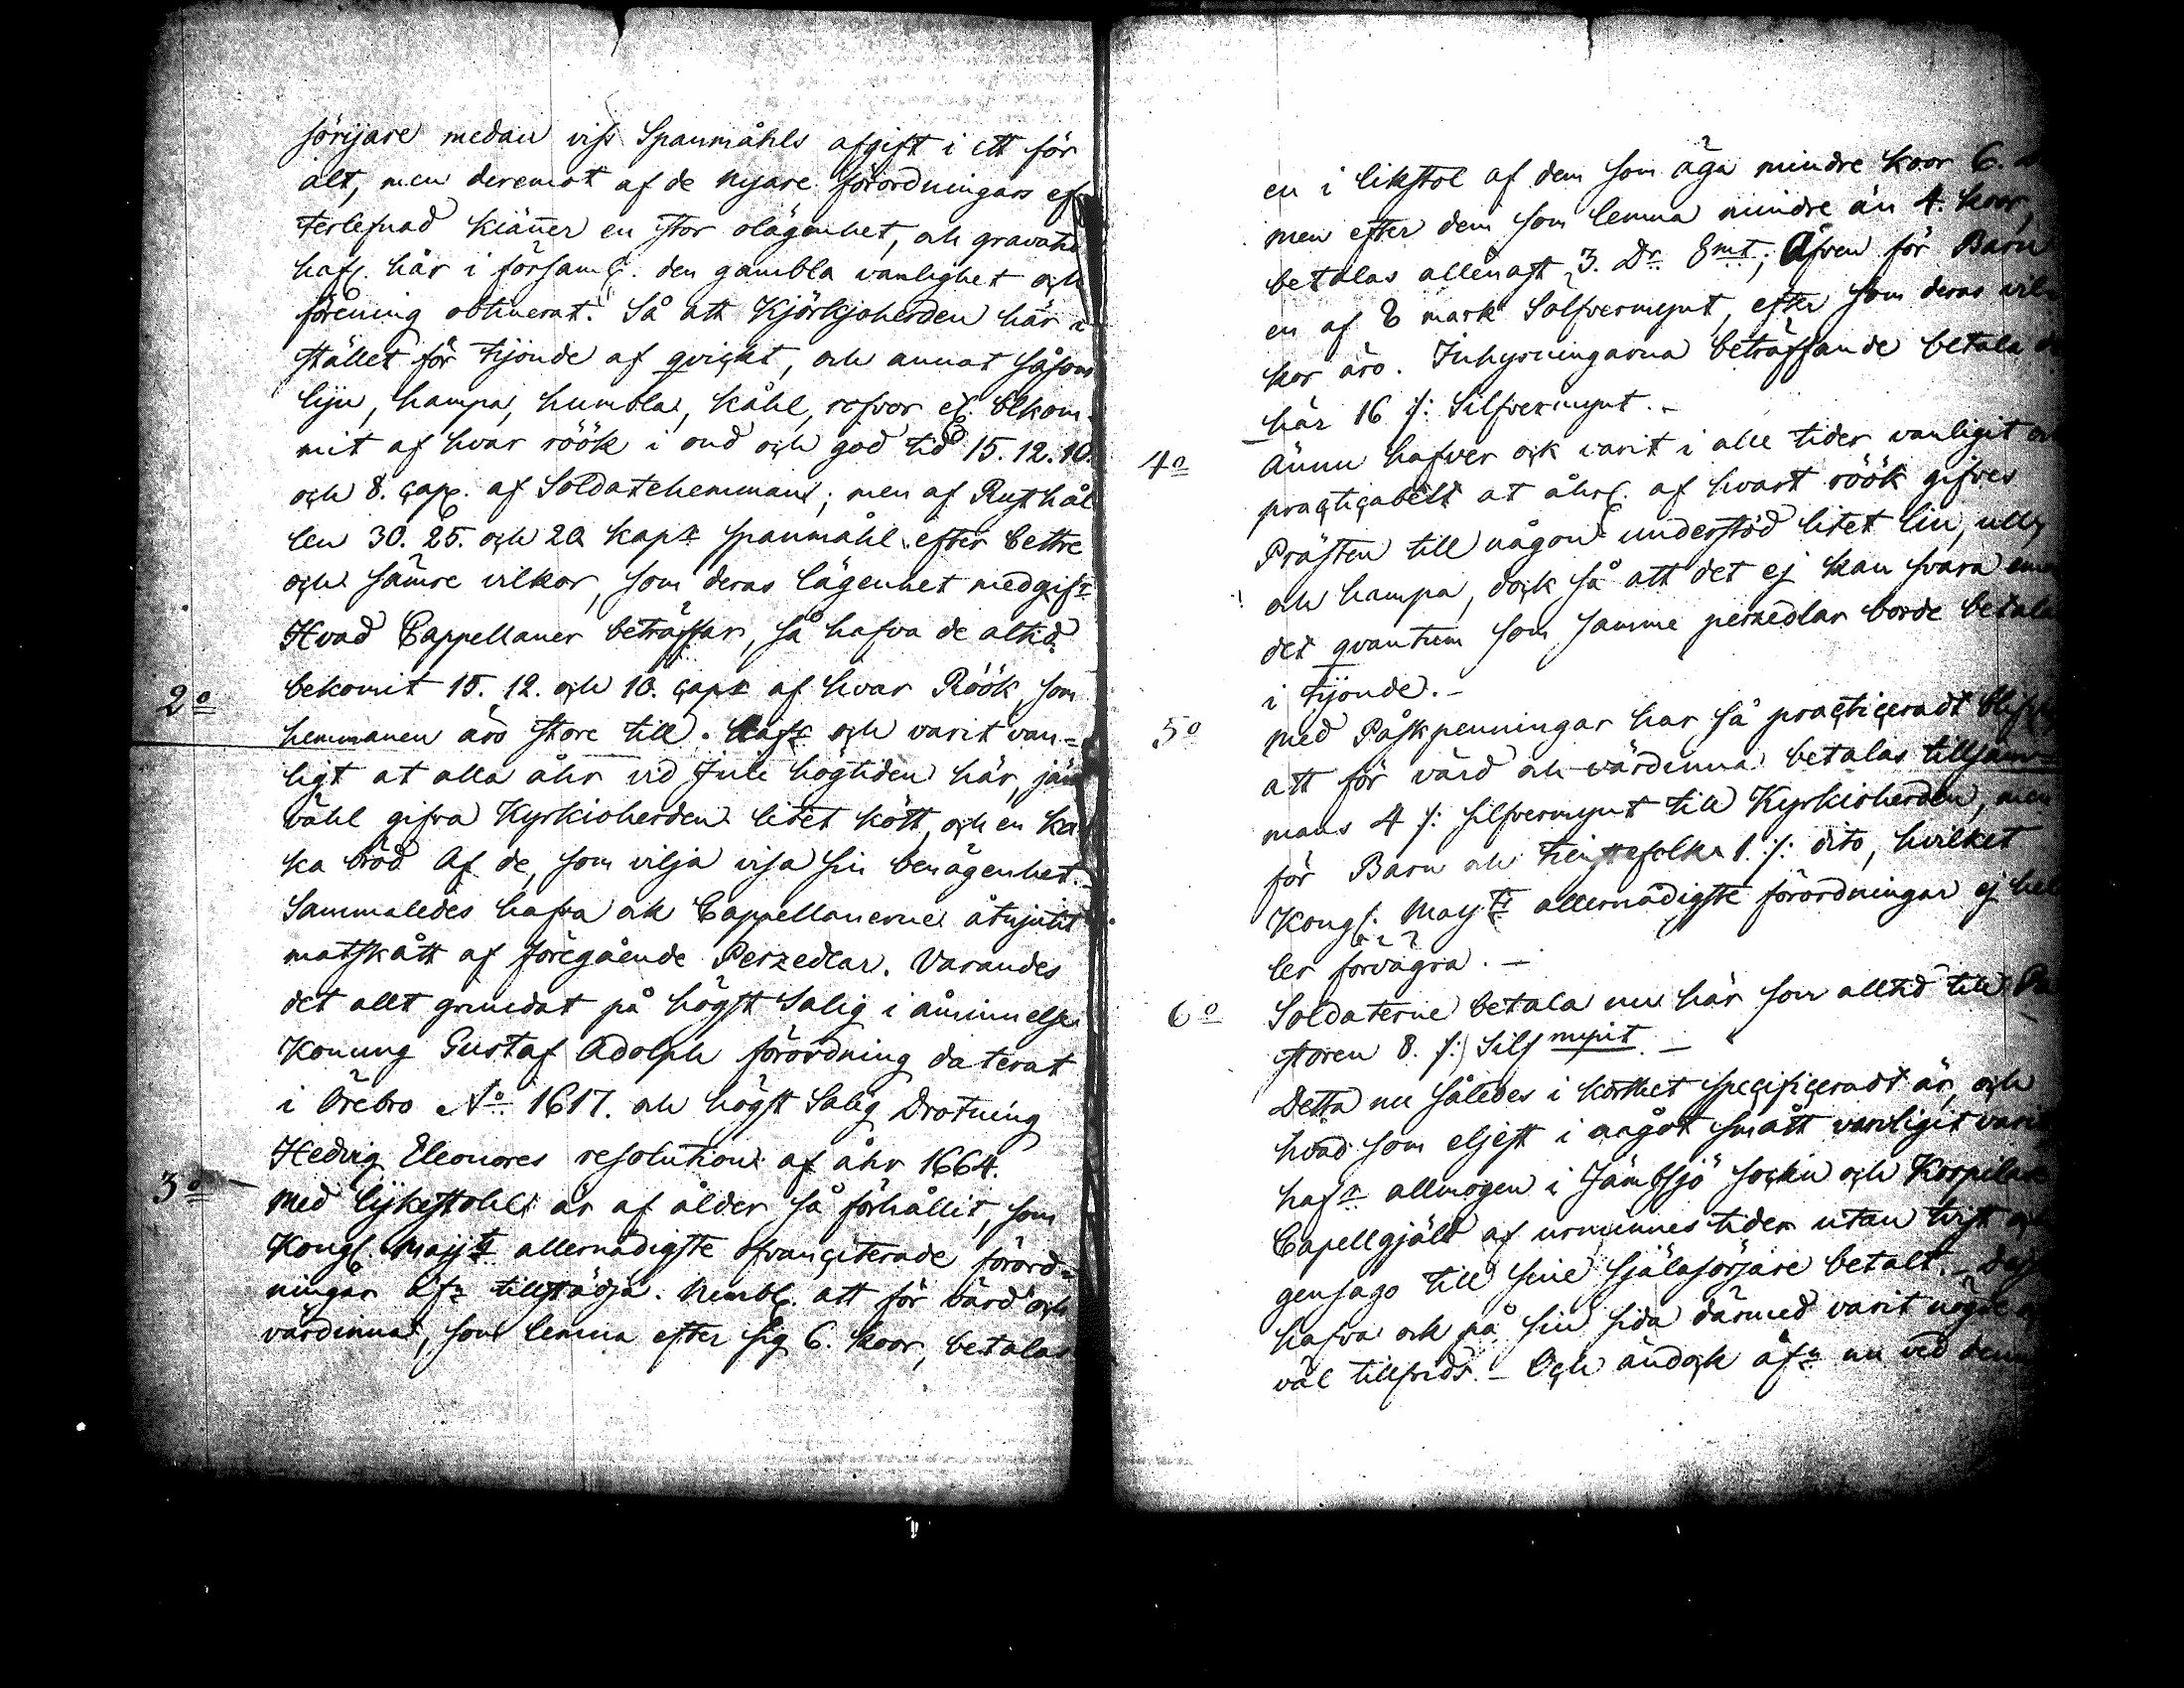 sörijare medan viss Spanmåhls afgift i ett för
alt, men deremot af de nyare förordningars ef
terlefnad kiänner en stor olägenhet, och gravation
hafv. här i församl. den gambla vanlighet och
förening obtinerat. Så att Kjörkjoherden här i
stället för tijonde af qvickt, och annat såsom
lijn, hampa, humbla, kåhl, rofvor etc. bekom-
mit af hvar röök i ond och god tid 15. 12. 10.
och 8. cap. af Soldatehemmans; men af Rusthål
len 30. 25. och 20 kapr spanmåhl efter bettre
och sämre vilkor, som deras lägenhet medgifr
Hvad Cappellaner beträffar, så hafva de altid
2o bekomit 15. 12. och 10. capr af hvar Röök, som
hemmanen äro store till. Hafr och varit van-
ligt at alla åhr vid Jule högtiden här, jäm
vähl gifva Kyrkioherden litet kött, och en ka
ka bröd Af de, som vilja visa sin benägenhet.
Sammaledes hafva ok Cappellanerne åtnjutit
matskått af föregående Perzedlar. Varandes
det allt grundat på högst Salig i åminnelse
Konung Gustaf Adolph förordning daterat
i Örebro No 1617. och högst Salig Drotning
Hedvig Eleonores resolution af åhr 1664.
3o Med lijkstohl är af ålder så förhållit, som
Kongl. Majts allernådigste ofvanciterade förord-
ningar äfr tillstädja. Nembl. att för värd och
värdinna, som lemna efter sig 6. koor, betalas
en i likstol af dem som äga mindre koor 6.
men efter dem som lemna mindre än 4. koor,
betalas allenast 3. Dr Smt; Äfven för Barn
en af 8 mark Solfvermynt, efter som deras vil
kor äro. Inhysningarna beträffande betala
här 16 /: Silfvermynt.-
4o Ännu hafver ock varit i alle tider vanligit och
practicabelt at åhrl. af hvart röök gifves
Prästen till någon understöd litet lin, ull,
och hampa, dock så att det ej kan svara emot
det qvantum som samme perzedlar borde betalas
i tijonde.-
5o Med Påskpenningar har så practiceradt blifvit
att för värd och värdinna betalas tillsam-
mans 4 /: silfvermynt till Kyrkioherden, men
för Barn och tienstefolk 1. /: dito, hvilket
Kongl. Majts allernådigste förordningar ej hel
ler förvägra.-
6o Soldaterne betala nu här som alltid till Pa
storen 8. /: Silfmynt.-
Detta nu således i korthet specificeradt är, och
hvad som eljest i något smått vanligit varit
hafr allmogen i Jämbsjö sockn och Korpilax
Capellgjäld af urminnes tider utan tvist och
gensago till sine själasörjare betalt.
hafva och på sin sida därmed varit nögde och
väl tillfreds.- Och ändock äfn nu vid